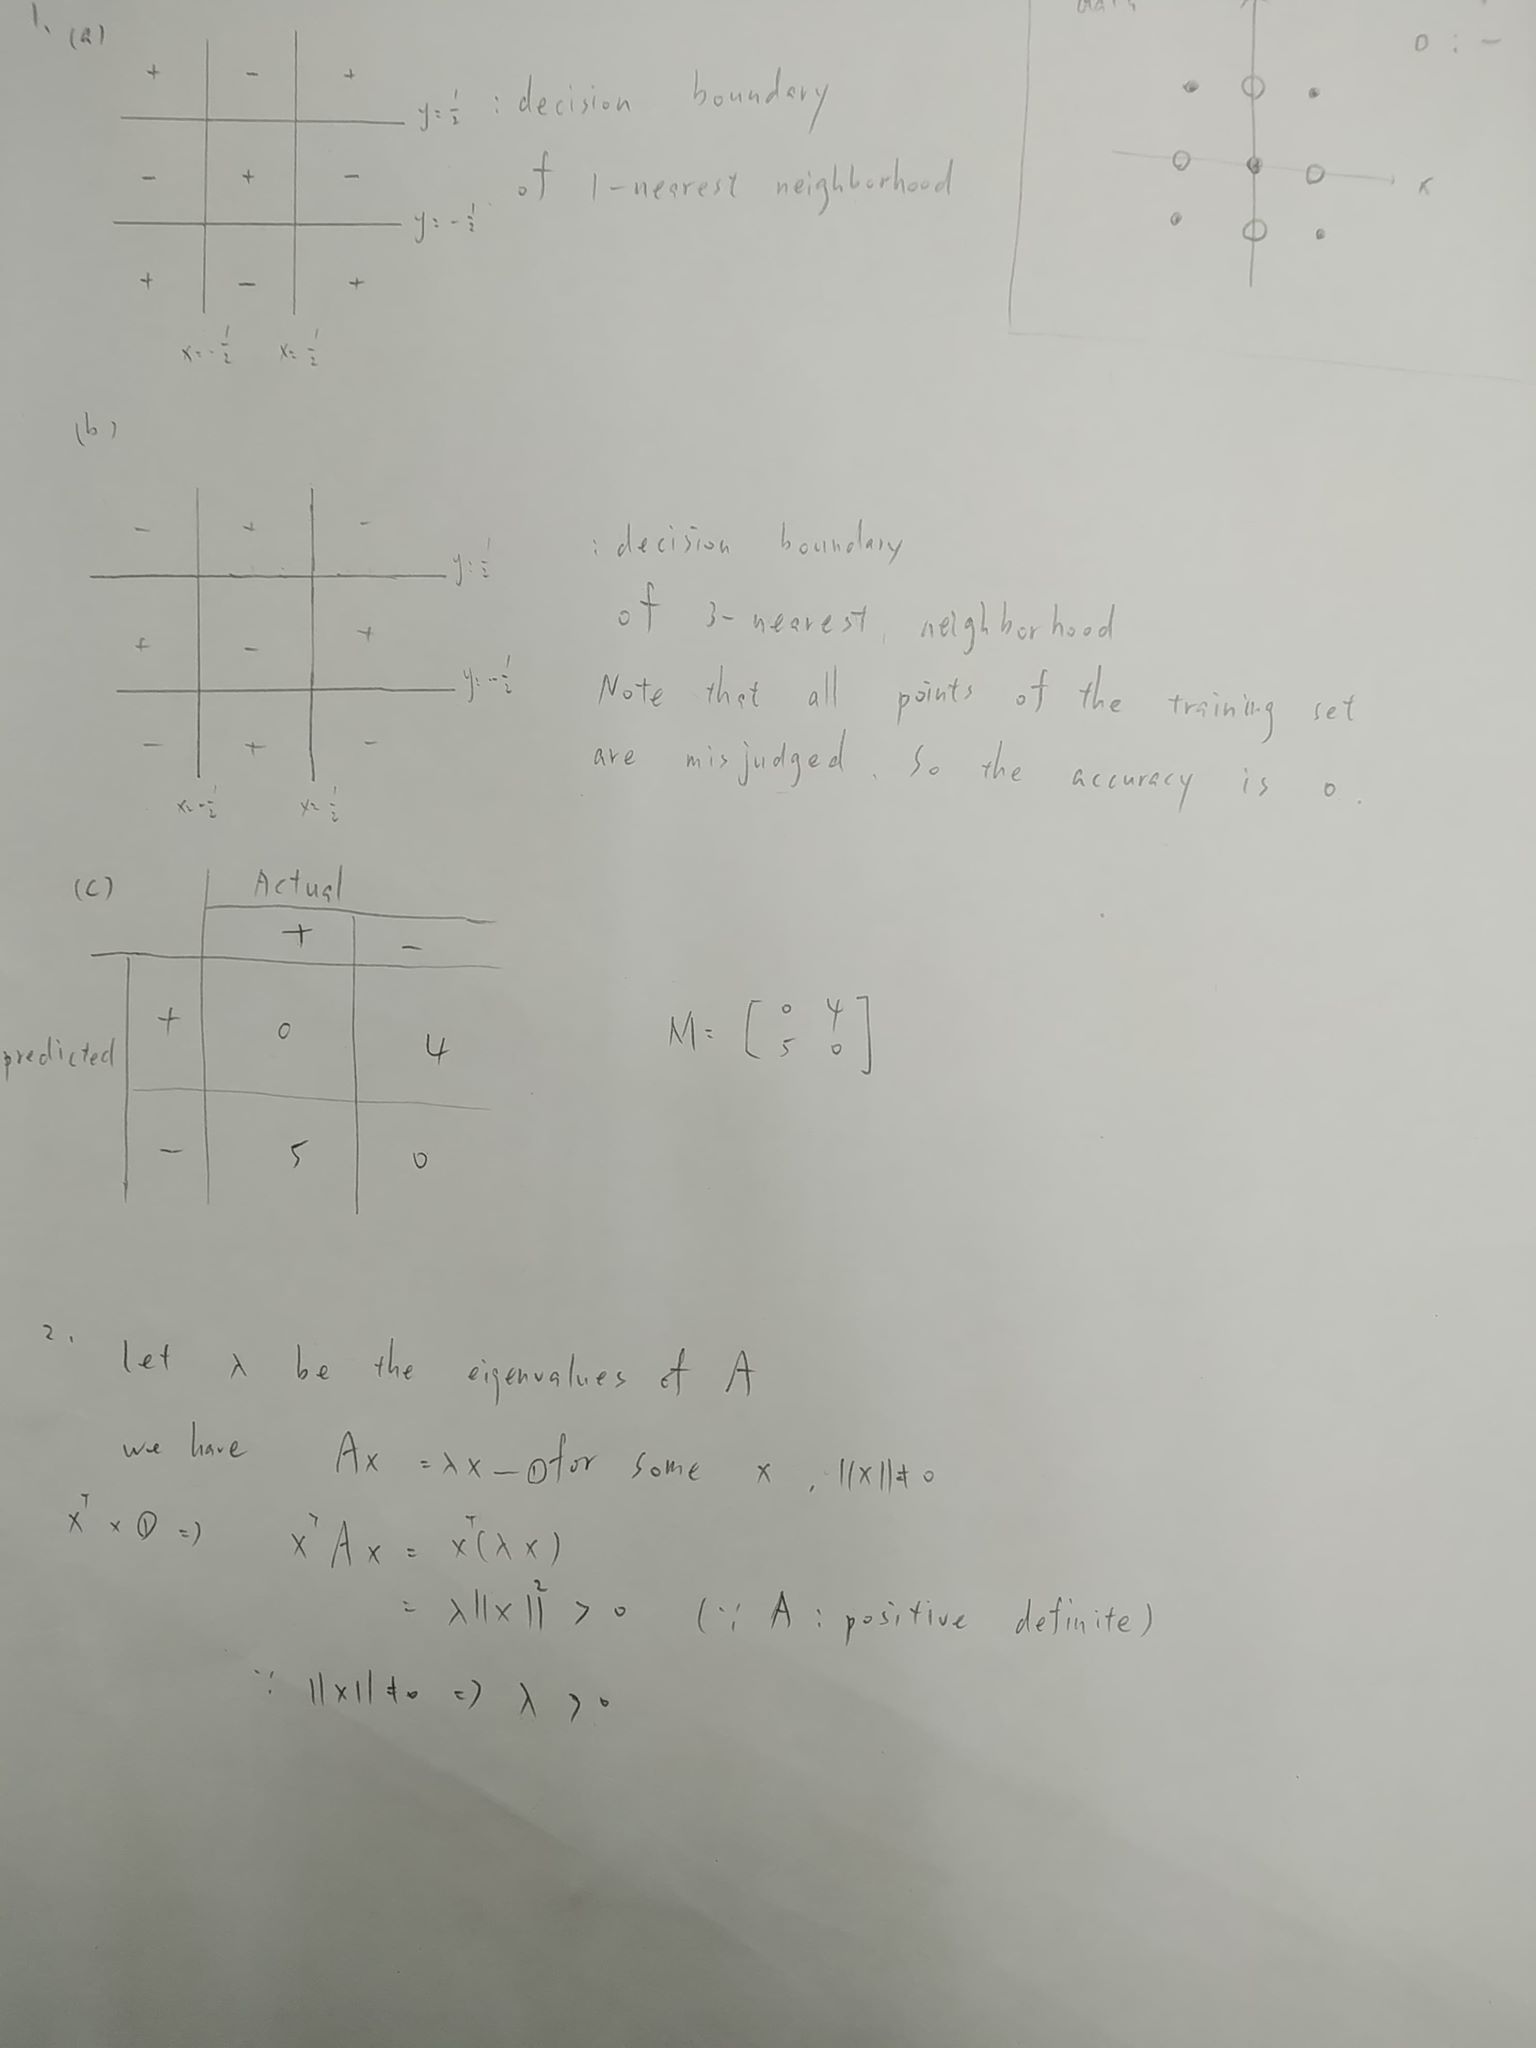 1. (a)
+ - +
y=1/2 : decision boundary
- + -
of 1-nearest neighborhood
y=-1/2
+ - +
x=-1/2 x=1/2
O : -
x
(b)
- + -
y=1/2
: decision boundary
+ - +
of 3-nearest neighborhood
y=-1/2
Note that all points of the training set
- + -
are misjudged. So the accuracy is 0.
x=-1/2 x=1/2
(c) Actual
+ -
predicted
+ 0 4
- 5 0
M = [ 0 4
5 0 ]
2.
Let λ be the eigenvalues of A
we have Ax = λx -① for some x, ||x||≠0
xᵀ × ① => xᵀAx = xᵀ(λx)
= λ||x||² > 0 (∵ A : positive definite)
∵ ||x||≠0 => λ > 0